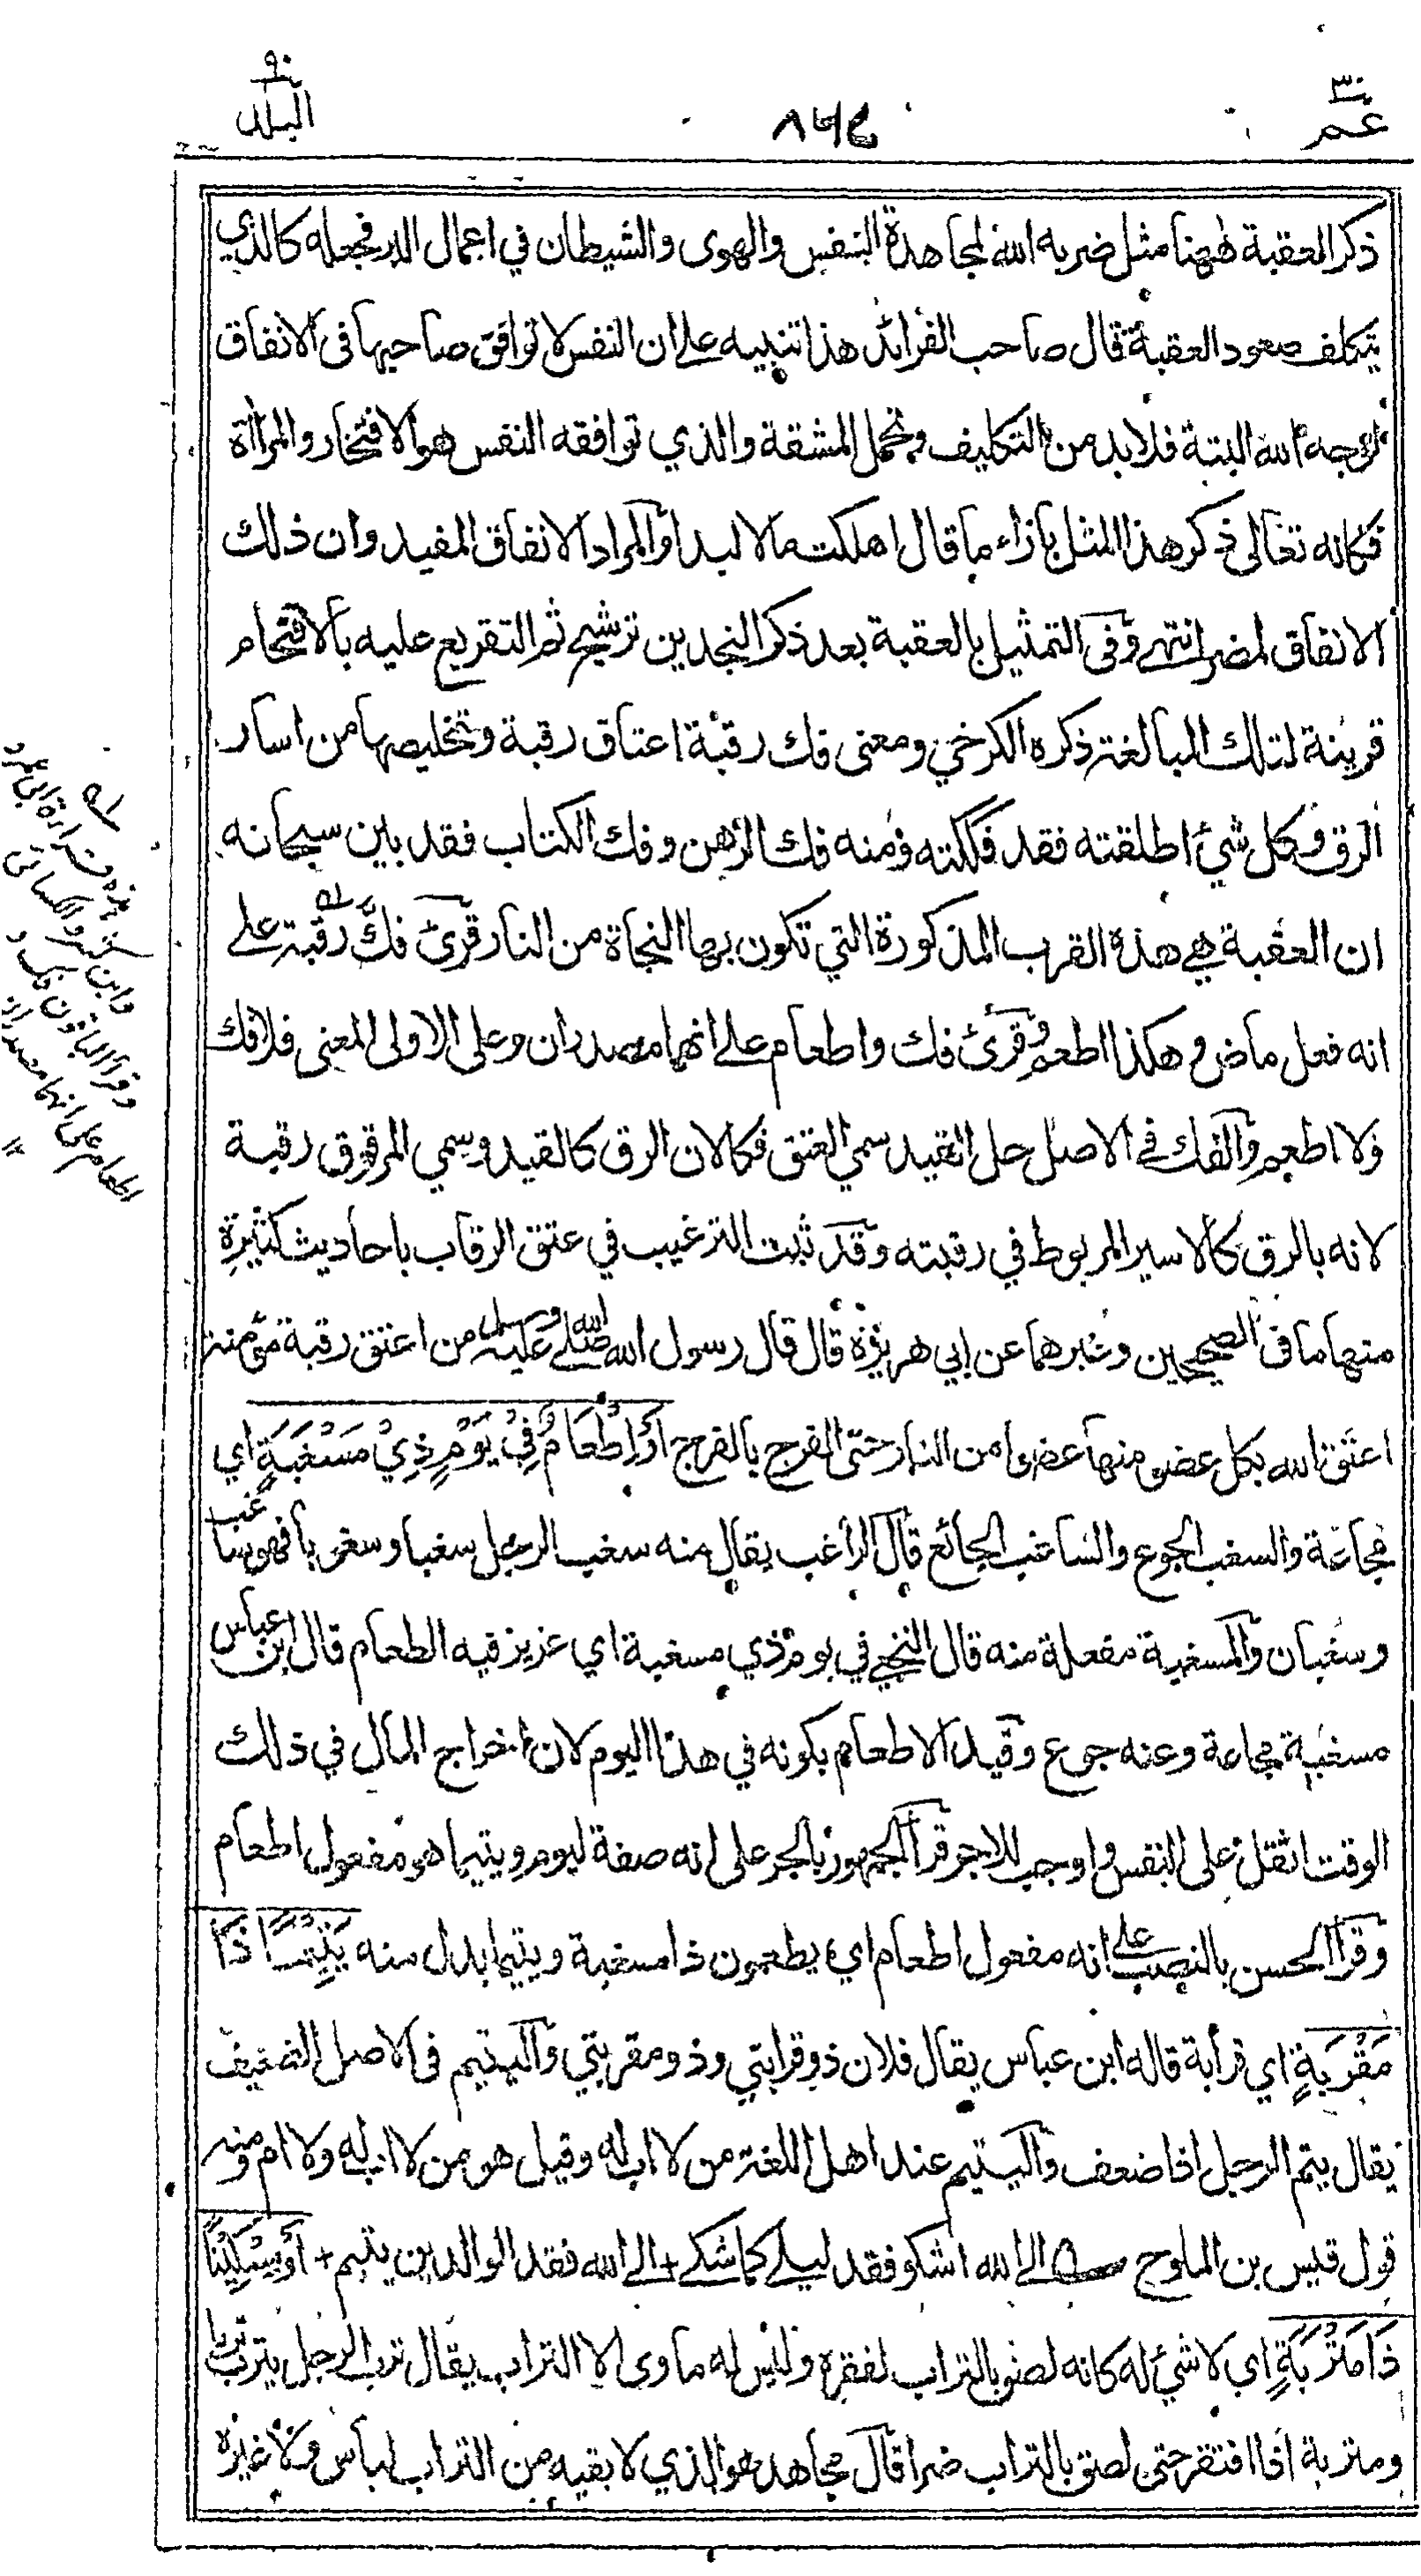 عم ٣٠
٨٦٤
البلد ٩٠
ذكر العقبة ههنا مثل ضربه الله لمجاهدة النفس والهوى والشيطان في اعمال البر فجعله كالذي
يتكلف صعود العقبة قال صاحب الفرائد هذا تنبيه على ان النفس لا توافق صاحبها فى الانفاق
لوجه الله البتة فلا بد من التكليف وتحمل المشقة والذي توافقه النفس هو الافتخار والمراأة
فكانه تعالى ذكر هذا المثل بازاء ما قال اهلكت مالا لبدا والمراد الانفاق المفيد وان ذلك
الانفاق لمضر انتهى وفى التمثيل بالعقبة بعد ذكر النجدين ترشيح ثم التقريع عليه بالاقتحام
قرينة لتلك المبالغة ذكره الكرخي ومعنى فك رقبة اعتاق رقبة وتخليصها من اسار
الرق وكل شيء اطلقته فقد فككته ومنه فك الرهن وفك الكتاب فقد بين سبحانه
ان العقبة هي هذه القرب المذكورة التي تكون بها النجاة من النار قرئ فكَّ رقبة على
انه فعل ماض وهكذا اطعم وقرئ فك واطعام على انهما مصدران وعلى الاولى المعنى فلا فك
ولا اطعم والفك في الاصل حل القيد سمي العتق فكا لان الرق كالقيد وسمي المرقوق رقبة
لانه بالرق كالاسير المربوط في رقبته وقد ثبت الترغيب في عتق الرقاب باحاديث كثيرة
منها ما فى الصحيحين وغيرهما عن ابي هريرة قال قال رسول الله صلى الله عليه وسلم من اعتق رقبة مؤمنة
اعتق الله بكل عضو منها عضوا من النار حتى الفرج بالفرج اَوْ اِطْعَامٌ فِيْ يَوْمٍ ذِيْ مَسْغَبَةٍ اي
مجاعة والسغب الجوع والساغب الجائع قال الراغب يقال منه سغب الرجل سغبا وسغوبا فهو ساغب
وسغبان والمسغبة مفعلة منه قال النخعي في يوم ذي مسغبة اي عزيز فيه الطعام قال ابن عباس
مسغبة مجاعة وعنه جوع وقيد الاطعام بكونه في هذا اليوم لان اخراج المال في ذلك
الوقت اثقل على النفس واوجب للاجر قرأ الجمهور بالجر على انه صفة ليوم ويتيما هو مفعول اطعام
وقرأ الحسن بالنصب على انه مفعول اطعام اي يطعمون ذا مسغبة ويتيما بدل منه يَتِيْمًا ذَا
مَقْرَبَةٍ اي قرابة قاله ابن عباس يقال فلان ذو قرابتي وذو مقربتي واليتيم فى الاصل الضعيف
يقال يتم الرجل اذا ضعف واليتيم عند اهل اللغة من لا اب له وقيل هو من لا اب له ولا ام ومنه
قول قيس بن الملوح الى الله اشكو فقد ليلى كما شكى + الى الله فقد الوالدين يتيم + اَوْ مِسْكِيْنًا
ذَا مَتْرَبَةٍ اي لا شيء له كانه لصق بالتراب لفقره وليس له ماوى الا التراب يقال ترب الرجل يترب تربا
ومتربة اذا افتقر حتى لصق بالتراب ضرا قال مجاهد هو الذي لا يقيه من التراب لباس ولا غيره
هذه قراءة ابي عمرو
وابن كثير والكسائي
وقرأ الباقون فك و
اطعام على انهما مصدران